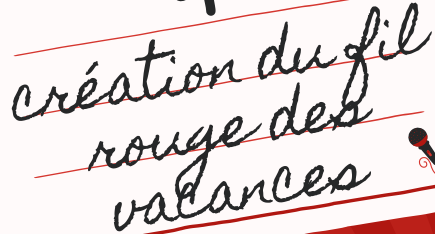 création du fil
rouge des
vacances